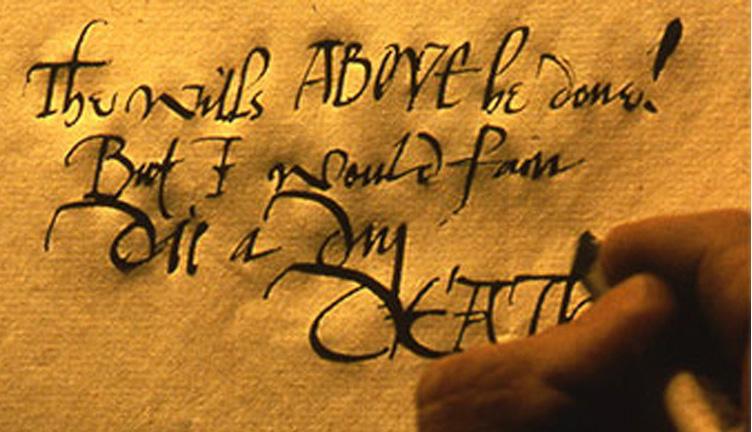 The wills ABOVE be done!
But I would fain
die a dry
DEATH